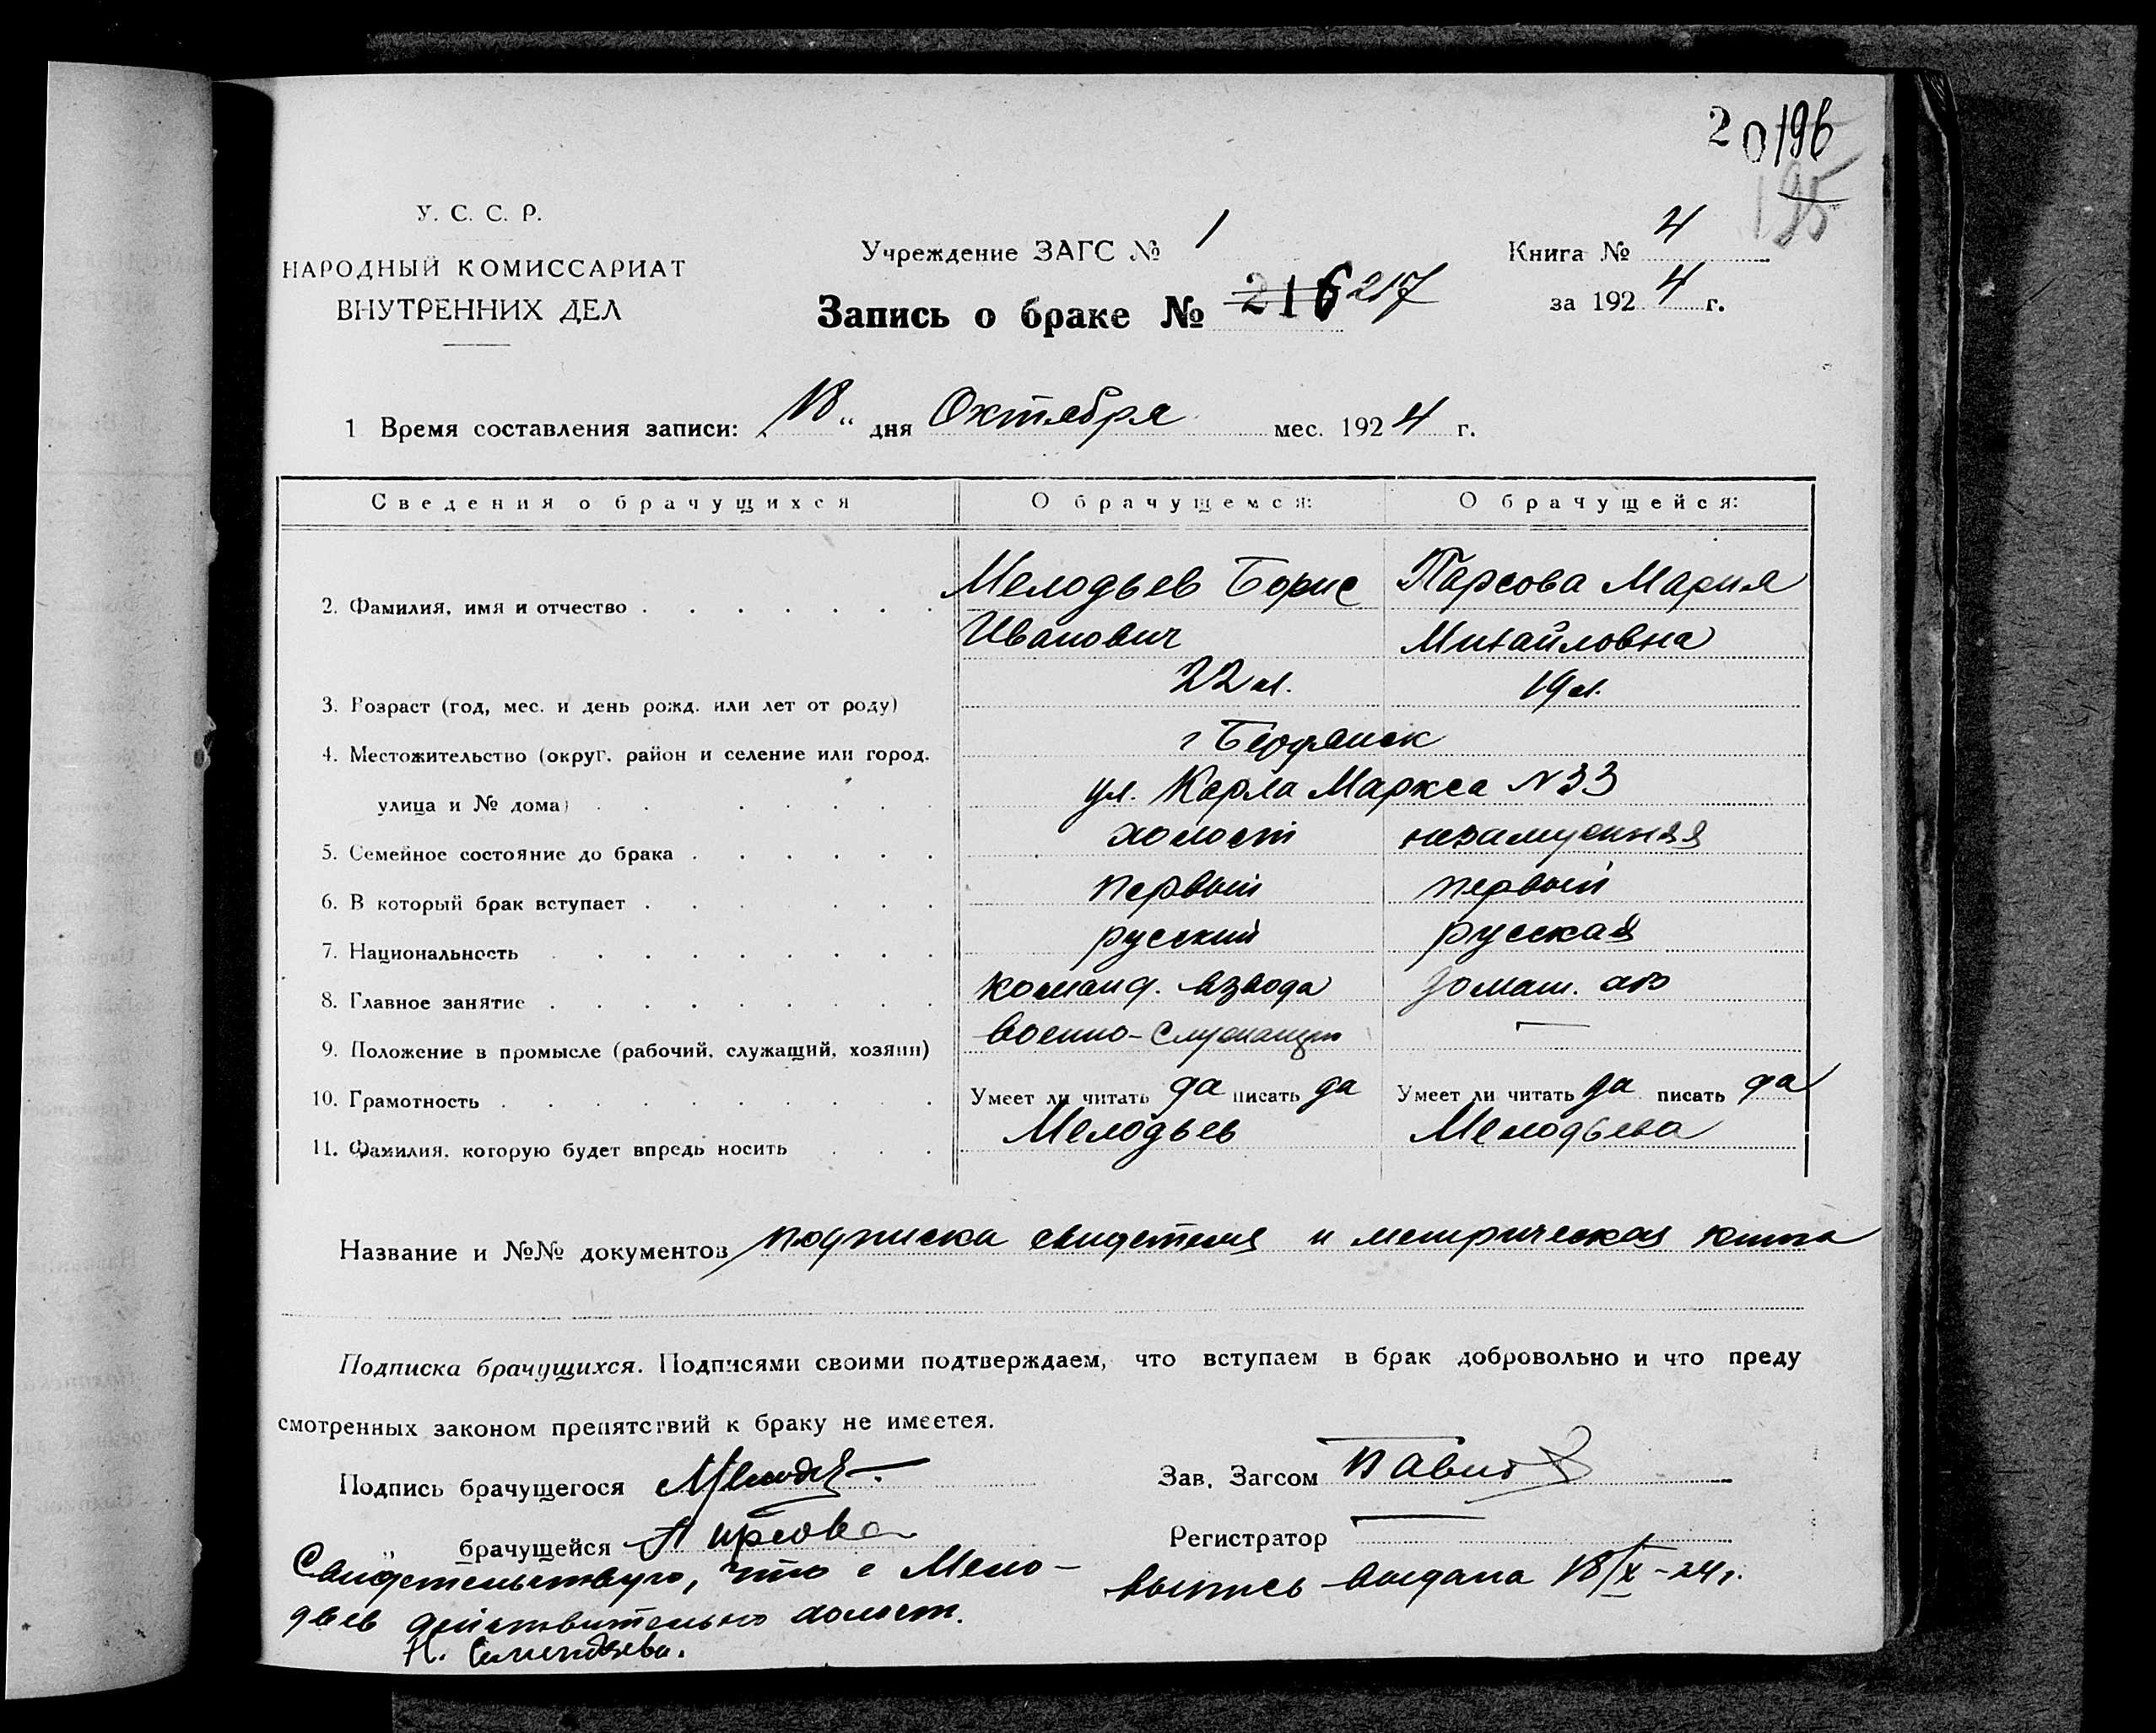 20 196
195
У. С. С. Р.
НАРОДНЫЙ КОМИССАРИАТ
ВНУТРЕННИХ ДЕЛ
Учреждение ЗАГС № 1
Книга № 4
Запись о браке № 216 217
за 1924 г.
1 Время составления записи: 18 " дня Октября мес. 1924 г.
Сведения о брачущихся О брачущемся: О брачущейся:
2. Фамилия, имя и отчество Мелодьев Борис Парсова Мария
Иванович Михайловна
3. Возраст (год, мес. и день рожд. или лет от роду) 22 л. 19 л.
4. Местожительство (округ, район и селение или город, г Бердянск
улица и № дома) ул. Карла Маркса N 33
5. Семейное состояние до брака холост незамужняя
6. В который брак вступает первый первый
7. Национальность русский русская
8. Главное занятие команд. взвода домаш. хоз
9. Положение в промысле (рабочий, служащий, хозяин) Военно-служащий —
10. Грамотность Умеет ли читать да писать да Умеет ли читать да писать да
11. Фамилия, которую будет впредь носить Мелодьев Мелодьева
Название и №№ документов подписка свидетеля и метрическая книга
Подписка брачущихся. Подписями своими подтверждаем, что вступаем в брак добровольно и что преду
смотренных законом препятствий к браку не имеетея.
Подпись брачущегося Зав. Загсом
" брачущейся Регистратор —
Свидетельствую, что с Мело-
дьев действительно холост.
выпись выдана 18/X-24 г.